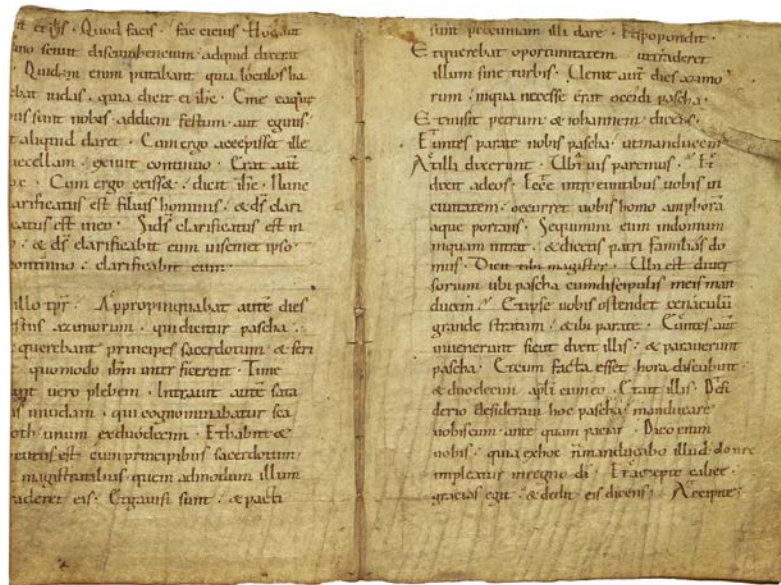 et ei ihs · Quod facis · fac citius · Hoc aut
mo scivit discumbencium · adquid dixerit
Quidam enim putabant quia loculos ha
ebat iudas · quia dicit ei ihc · Eme ea que
us sunt nobis · ad diem festum · aut egenis
t aliquid daret · Cum ergo accepisset ille
uccellam · exivit continuo · Erat aut
Cum ergo exisset · dicit ihc · Nunc
larificatus est filius hominis · & ds clari
catus est in eo · Si ds clarificatus est in
o · & ds clarificabit eum in semet ipso ·
continuo · clarificabit eum ·
illo tpr · Appropinquabat aute dies
stus azimorum · qui dicitur pascha ·
e querebant principes sacerdotum & scri
quomodo ihm interficerent · Time
ant vero plebem · Intravit aute sata
s in iudam · qui cognominabatur sca
oth · unum ex duodecim · Et habiit &
cutus est cum principibus sacerdotum ·
magistratibus · quem admodum illum
raderet eis · Et gavisi sunt · & pacti
sunt pecuniam illi dare · Et spopondit ·
Et querebat oportunitatem ut traderet
illum sine turbis · Venit aut dies azimo
rum · in qua necesse erat occidi pascha ·
Et misit petrum & iohannem dicens ·
Euntes parate nobis pascha · ut manducem
At illi dixerunt · Ubi vis paremus · Et
dixit ad eos · Ecce introeuntibus vobis in
civitatem · occurret vobis homo amphora
aque portans · Sequimini eum in domum
in quam intrat · & dicetis patri familias do
mus · Dicit tibi magister · Ubi est diver
sorium ubi pascha cum discipulis meis man
ducem · Et ipse vobis ostendet cenaculu
grande stratum · & ibi parate · Euntes aut
invenerunt sicut dixit illis · & paraverunt
pascha · Et cum facta esset hora discubuit ·
& duodecim apli cum eo · Et ait illis · Desi
derio desideravi hoc pascha manducare
vobiscum · ante quam paciar · Dico enim
vobis · quia ex hoc n manducabo illud · donec
impleatur in regno di · Et accepto calice ·
gracias egit · & dedit eis dicens · Accipite